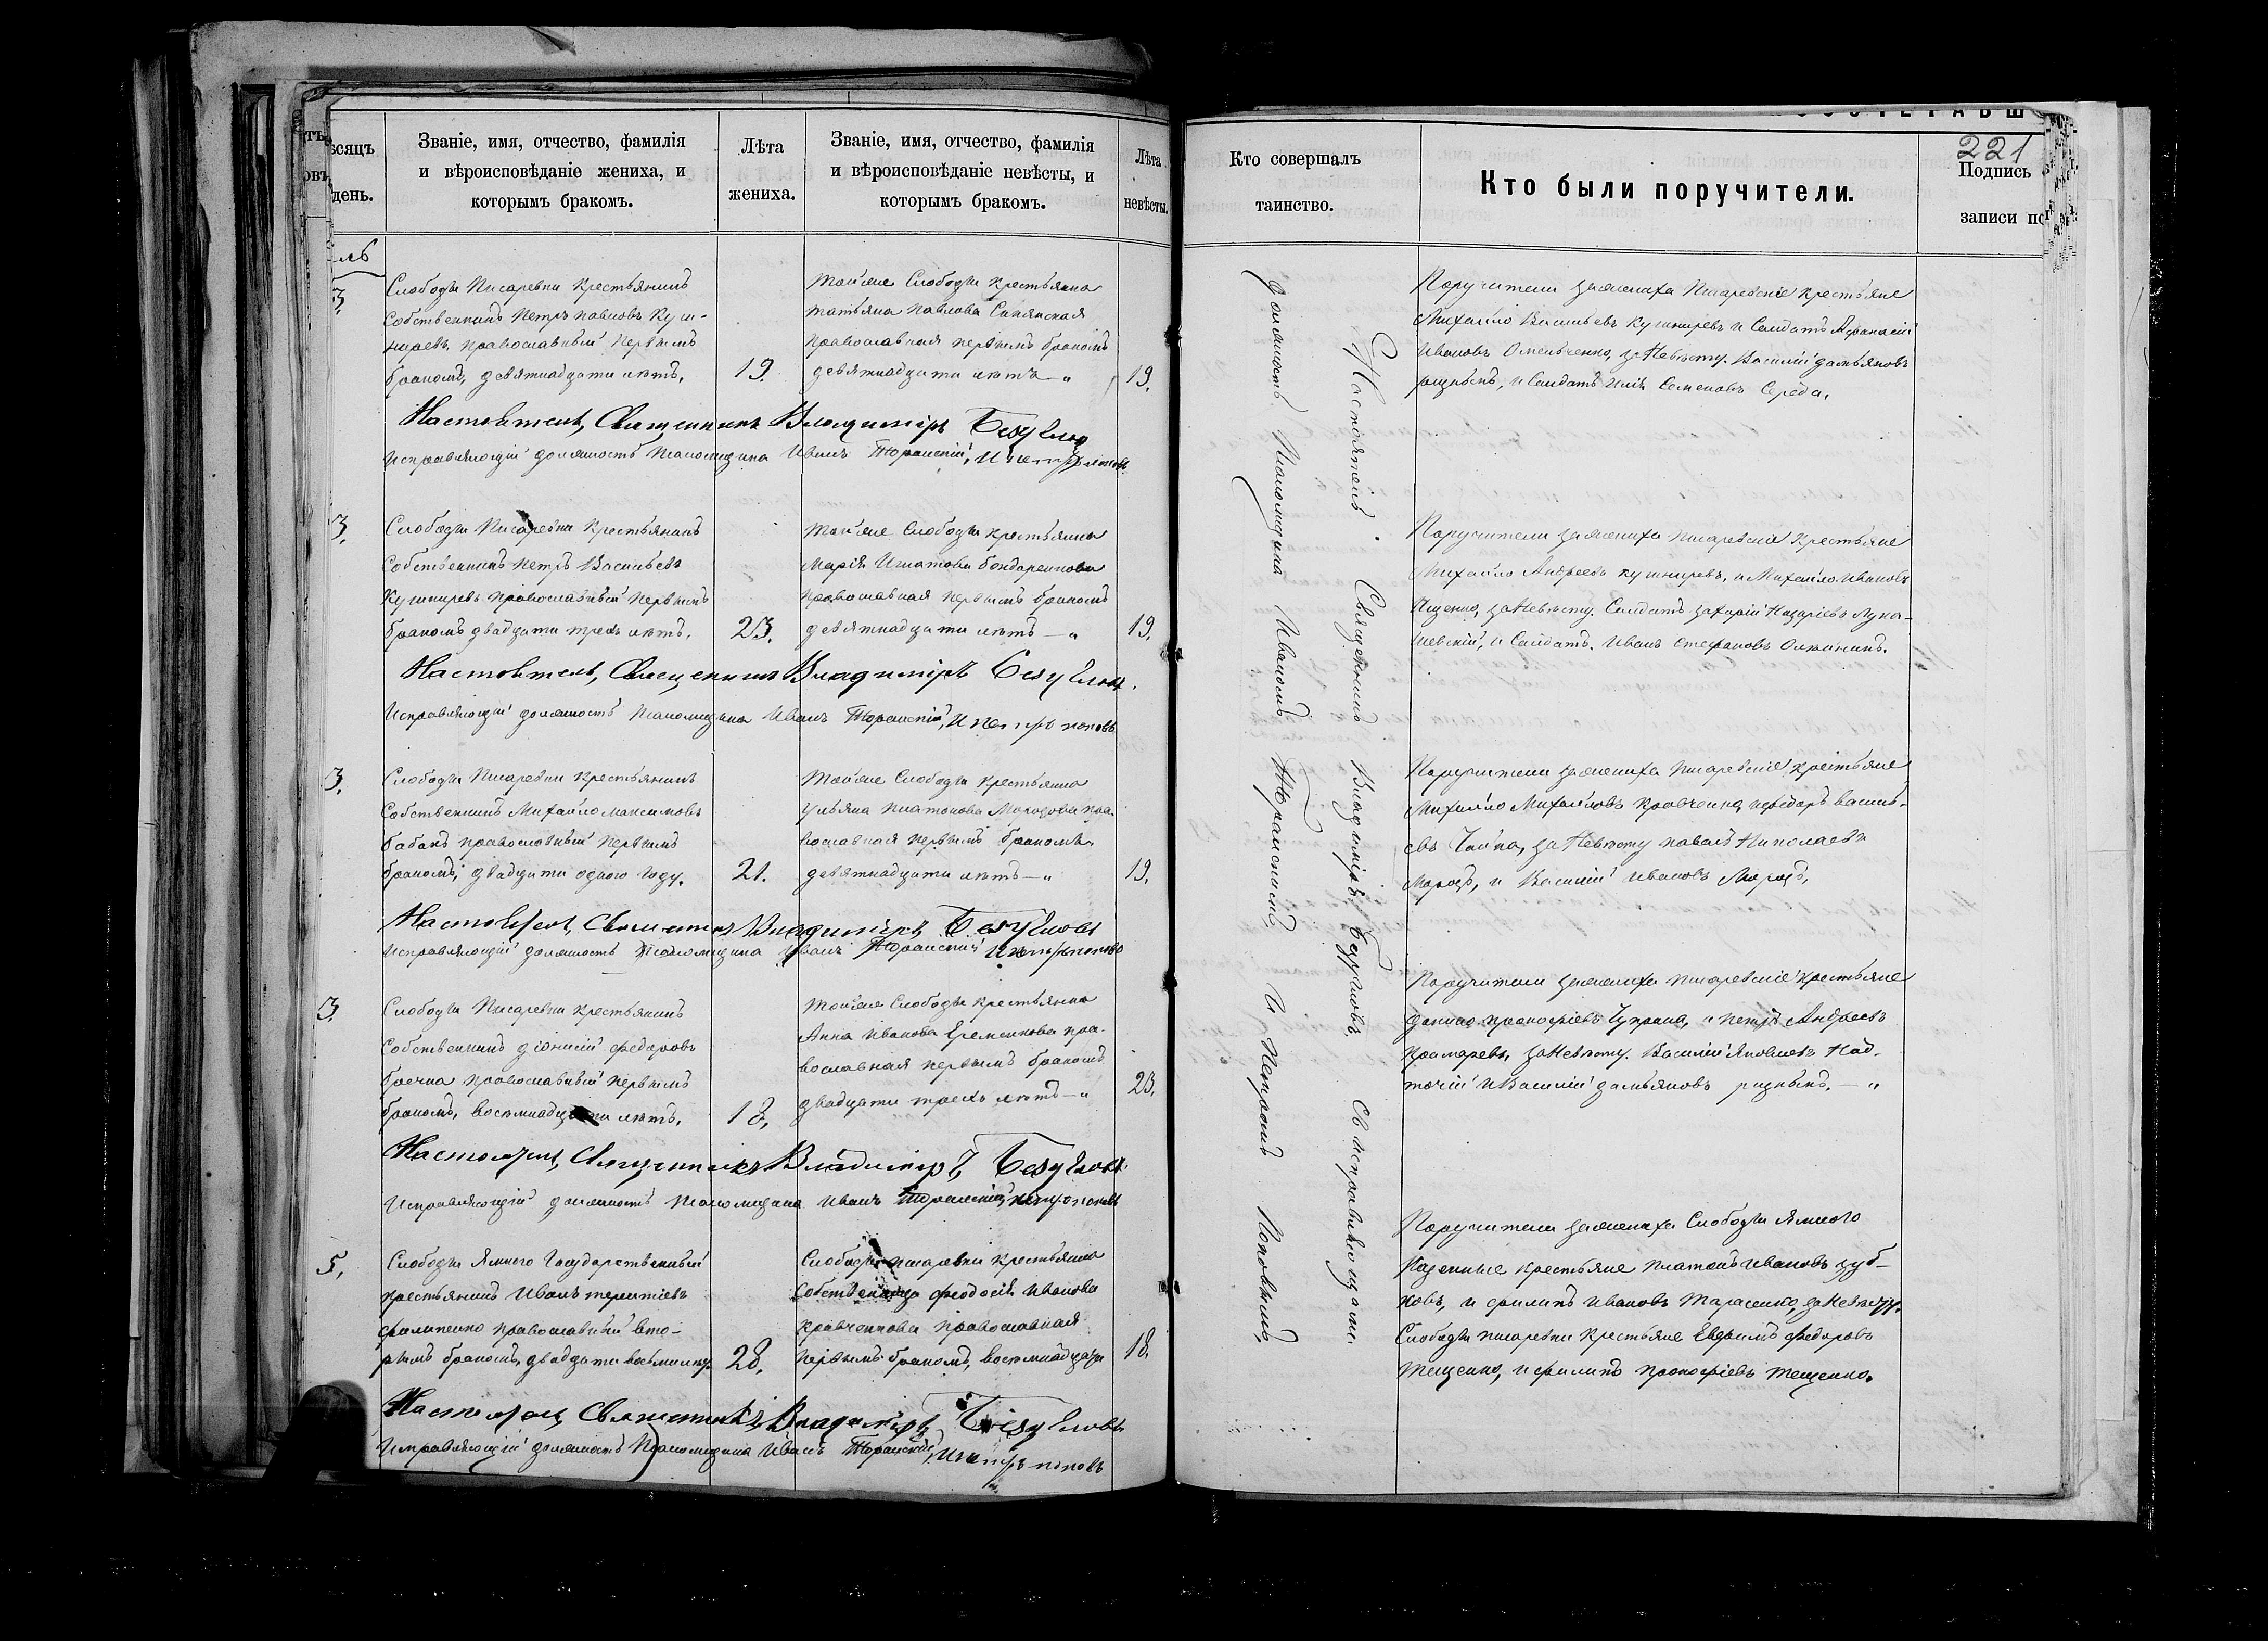 сяцъ
день.
Званіе, имя, отчество, фамилія
и вѣроисповѣданіе жениха, и
которымъ бракомъ.
Лѣта
жениха.
Званіе, имя, отчество, фамилія
и вѣроисповѣданіе невѣсты, и
которымъ бракомъ.
Лѣта
невѣсты.
3.
Слободы Писаревки крестьянинъ
Собственникъ Петръ Павловъ Куш-
ниревъ, православный первымъ
бракомъ, девятнадцати лѣтъ,
19.
Той же Слободы крестьянка
Татьяна Павлова
православная первымъ бракомъ
девятнадцати лѣтъ — „
19.
Настоятель, Священникъ Владиміръ Безугловъ
Исправляющій должность Псаломщика Иванъ Торанскій, и Петръ Поповъ
3.
Слободы Писаревки Крестьянинъ
Собственникъ Петръ Васильевъ
Кушниревъ православный первымъ
бракомъ двадцати трехъ лѣтъ,
23.
Той же Слободы крестьянка
Марія Игнатова Бондаренкова
православная первымъ бракомъ
девятнадцати лѣтъ — „
19.
Настоятель, Священникъ Владиміръ Безугловъ.
Исправляющій должность Псаломщика Иванъ Торанскій, и Петръ Поповъ
3.
Слободы Писаревки Крестьянинъ
Собственникъ Михайло Максимовъ
Бабакъ православный первымъ
бракомъ, двадцати одного году.
21.
Той же Слободы крестьянка
Ульяна Платонова пра-
вославная первымъ бракомъ
девятнадцати лѣтъ — „
19.
Настоятель, Священникъ Владиміръ Безугловъ
Исправляющій должность Псаломщика Иванъ Торанскій и Петръ Поповъ
3.
Слободы Писаревки крестьянинъ
Собственникъ Діонисій Федоровъ
православный первымъ
бракомъ, восемнадцати лѣтъ,
18,
Той же Слободы Крестьянка
Анна Иванова Еременкова пра-
вославная первымъ бракомъ
двадцати трехъ лѣтъ — „
23,
Настоятель, Священникъ Владиміръ, Безугловъ.
Исправляющій должность Псаломщика Иванъ Торанскій, Петръ Поповъ
5,
Слободы Ямного Государственный
крестьянинъ Иванъ Терентіевъ
Филипенко православный вто-
рымъ бракомъ, двадцати восьми лѣтъ.
28,
Слободы Писаревки крестьянка
Собственница Феодосія Иванова
Кравченкова православная
первымъ бракомъ, восемнадцати
18.
Настоятель, Священникъ, Владиміръ, Безугловъ
Исправляющій должность Псаломщика Иванъ Торанскій, и Петръ Поповъ
221
Кто совершалъ
таинство.
Кто были поручители.
Подпись
записи по
Настоятель Священникъ Владиміръ Безугловъ съ исправляющими
должность Псаломщика Иваномъ Торанскимъ и Петромъ Поповымъ,
Поручители за жениха Писаревскіе крестьяне
Михайло Васильевъ Кушниревъ и Солдатъ Афанасій
Ивановъ Омельченко, за Невѣсту. Василій Дамьяновъ
и Солдатъ Илія Семеновъ Середа,
Поручители за жениха Писаревскіе Крестьяне
Михайло Андреевъ Кушниревъ, и Михайло Ивановъ
Ищенко, за Невѣсту. Солдатъ Захарій Назаріевъ Лука-
шевскій, и Солдатъ. Иванъ Стефановъ
Поручители за жениха Писаревскіе Крестьяне
Михайло Михайловъ Кравченко, и Федоръ Василь-
евъ Чайка, за Невѣсту Павелъ Николаевъ
Морозъ, и Василій Ивановъ Морозъ,
Поручители за жениха Писаревскіе Крестьяне
Прокофіевъ и Петръ Андреевъ
за Невѣсту. Василій Яковлевъ Над-
точій и Василій Дамьяновъ — „
Поручители за жениха Слободы Ямного
Казенные крестьяне Платонъ Ивановъ Зуб-
ковъ, и Филипъ Ивановъ Тарасенко, за Невѣсту.
Слободы Писаревки Крестьяне Евфимъ Федоровъ
Тещенко, и Филипъ Прокофіевъ Тещенко.